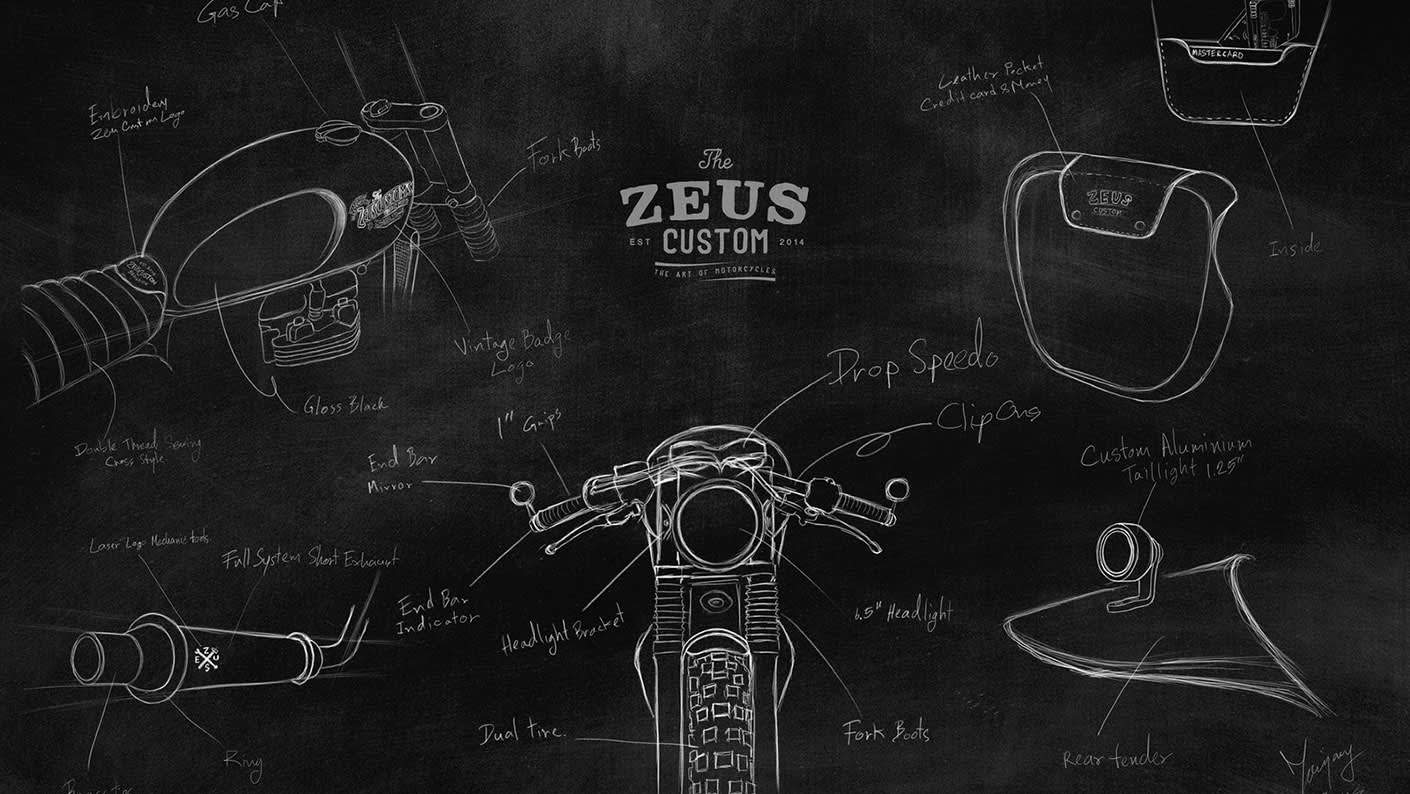 Gas Cap
Embroidery
Zeus Custom Logo
Fork Boots
The
ZEUS
EST CUSTOM 2014
THE ART OF MOTORCYCLES
Leather Pocket
Credit card & Money
MASTERCARD
ZEUS
CUSTOM
Inside
Vintage Badge
Logo
Gloss Black
Double Thread Sewing
Cross Style
Drop Speedo
Clip Ons
1" Grips
End Bar
Mirror
Custom Aluminium
Taillight 1.25"
Laser Logo Mechanic tools
Full System Short Exhaust
ZEUS
End Bar
Indicator
Headlight Bracket
6.5" Headlight
Dual tire.
Fork Boots
Ring
Rear fender